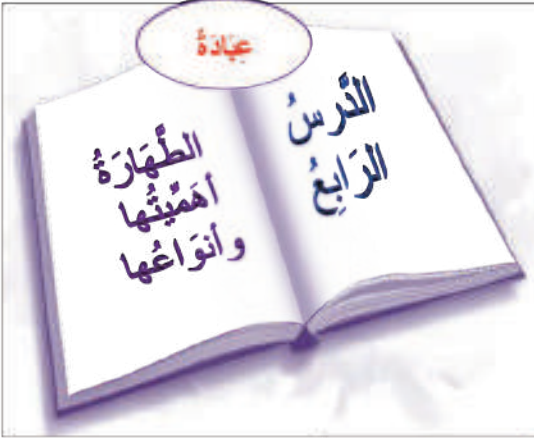 عِبَادَةٌ
الدَّرسُ
الرَابِعُ
الطَّهَارَةُ
أهَمِّيتُها
وأنوَاعُها